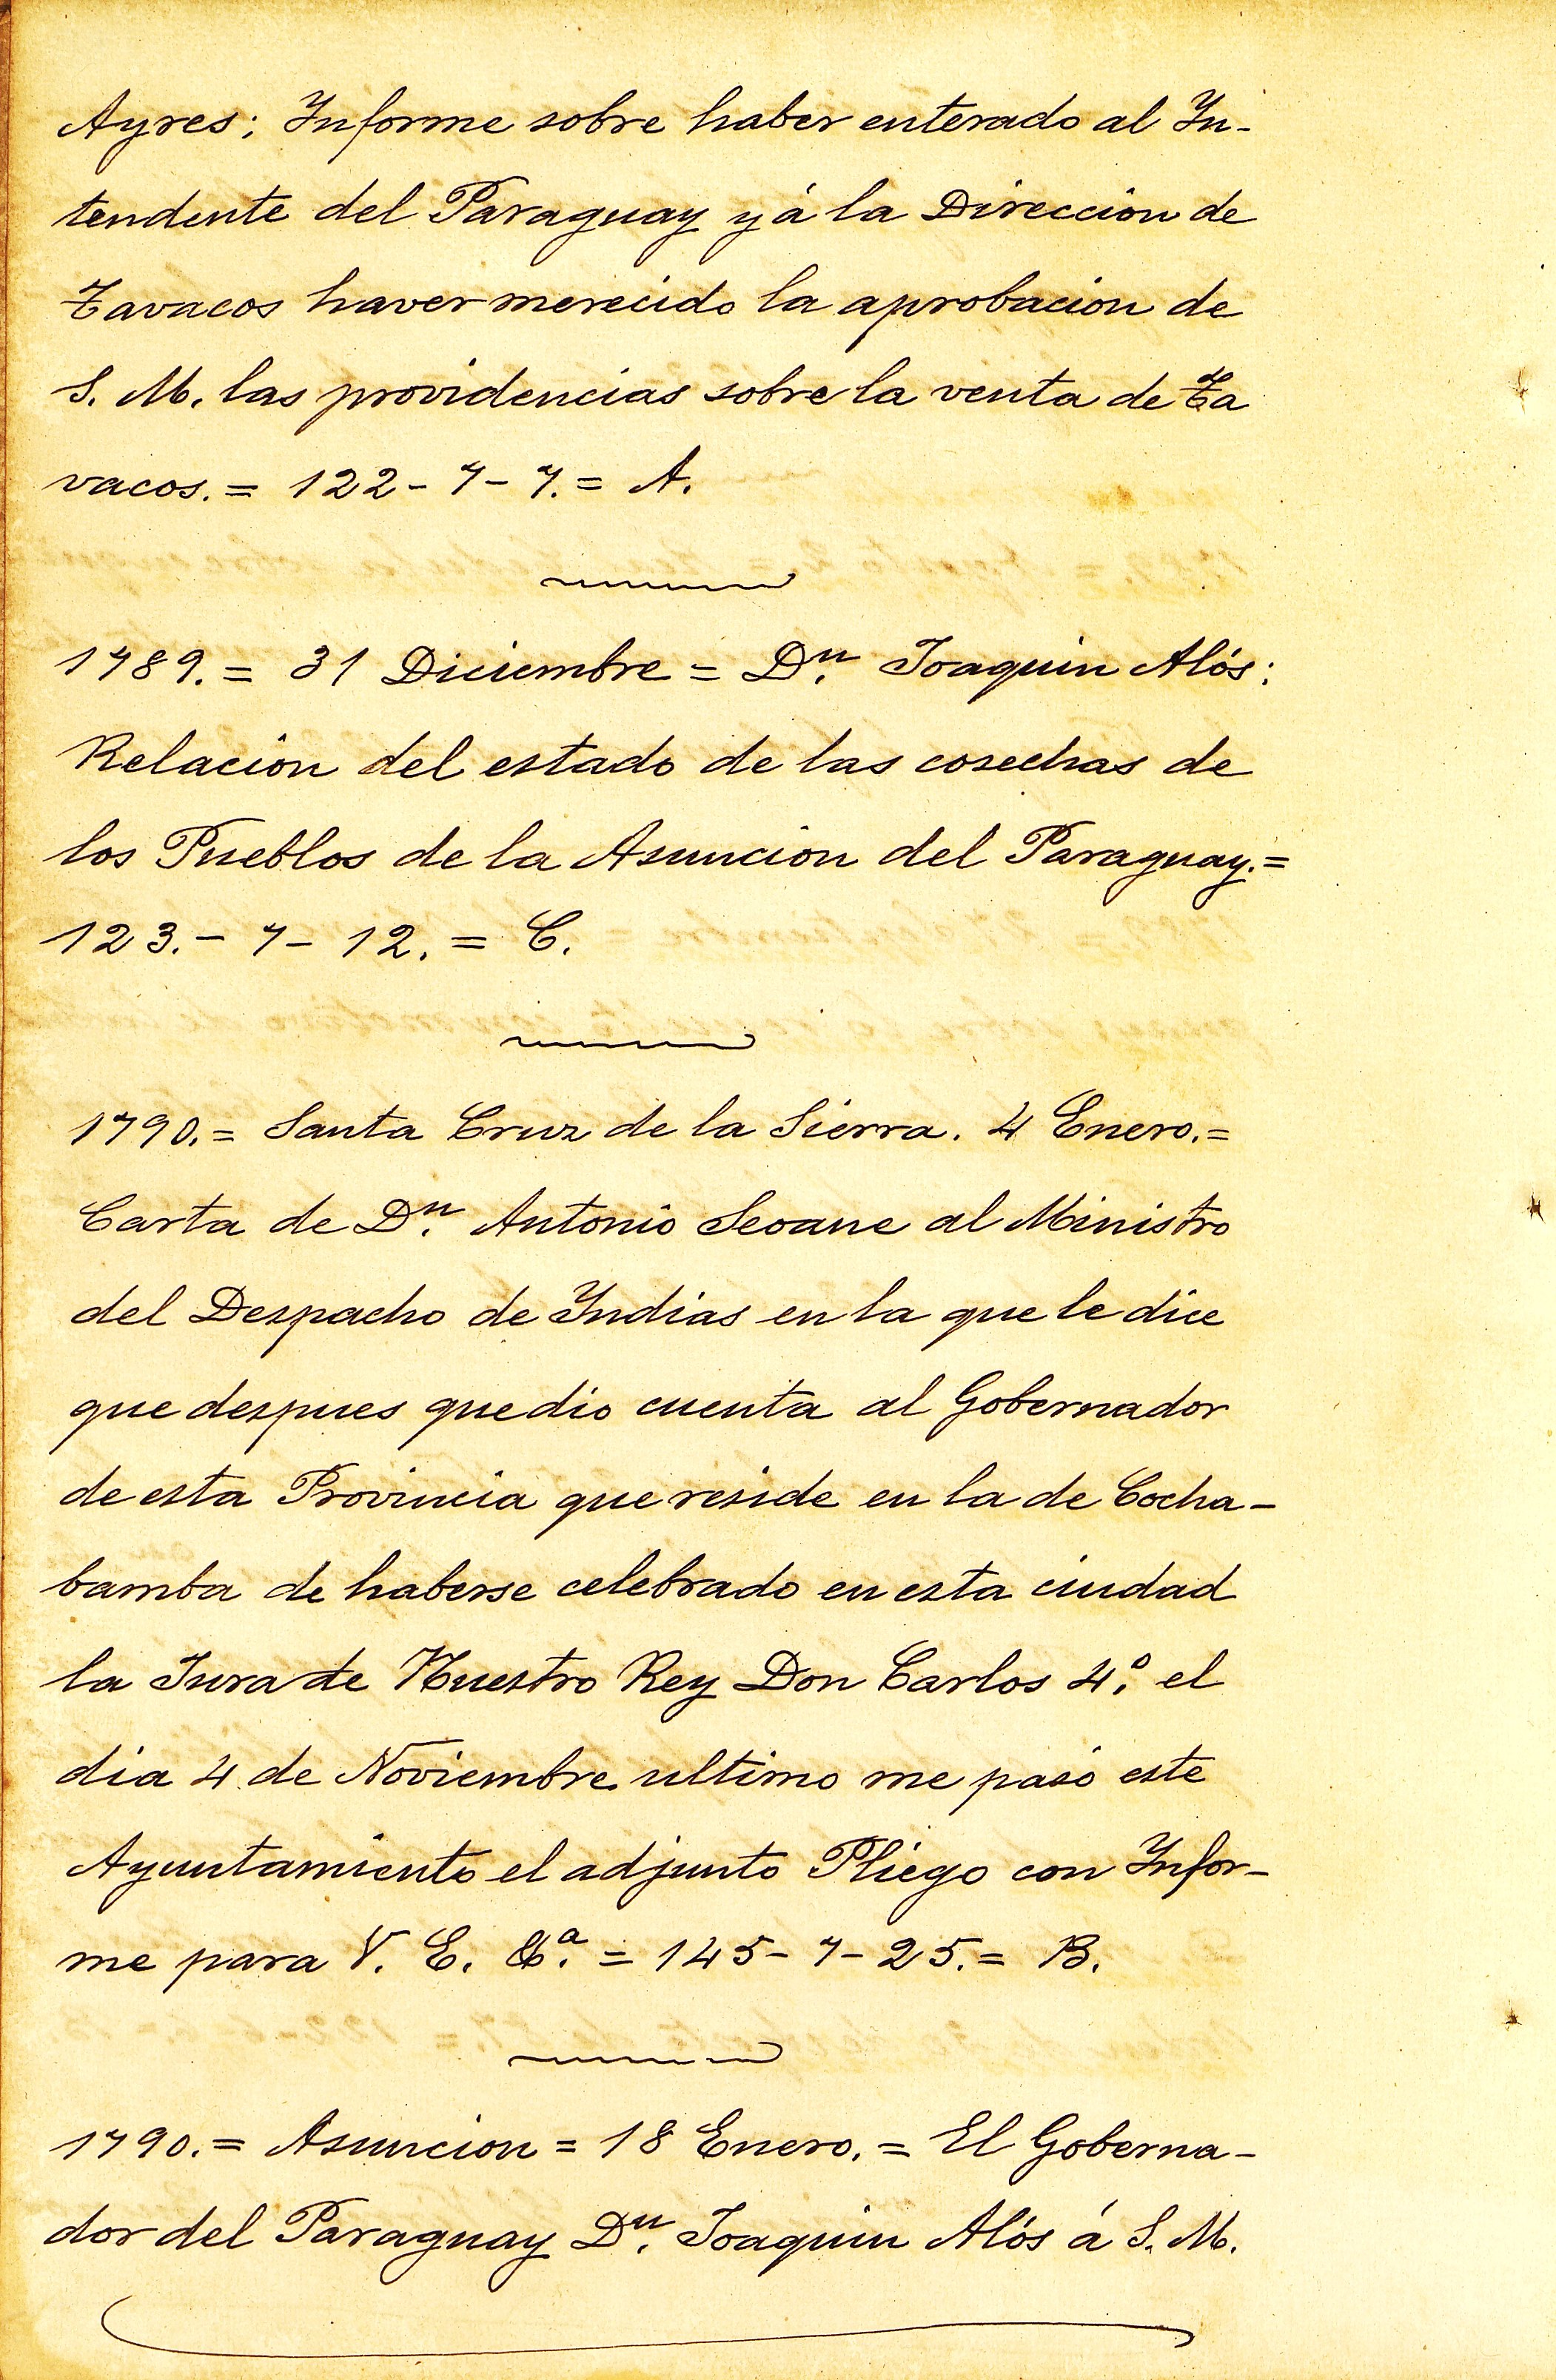 Ayres; Informe sobre haber enterado al In-
tendente del Paraguay y á la Direccion de
Tavacos haver merecido la aprobacion de
S. M. las providencias sobre la venta de Ta
vacos. = 122 - 7 - 7. = A.
1789. = 31 Diciembre = Dn. Joaquin Alós:
Relacion del estado de las cosechas de
los Pueblos de la Asuncion del Paraguay. =
123. - 7 - 12. = C.
1790. = Santa Cruz de la Sierra. 4 Enero. =
Carta de Dn. Antonio Seoane al Ministro
del Despacho de Indias en la que le dice
que despues que dio cuenta al Gobernador
de esta Provincia que reside en la de Cocha-
bamba de haberse celebrado en esta ciudad
la Jura de Nuestro Rey Don Carlos 4.º el
dia 4 de Noviembre ultimo me pasó este
Ayuntamiento el adjunto Pliego con Infor-
me para V. E. &.ª = 145 - 7 - 25. = B.
1790. = Asuncion = 18 Enero. = El Goberna-
dor del Paraguay Dn. Joaquin Alós á S. M.